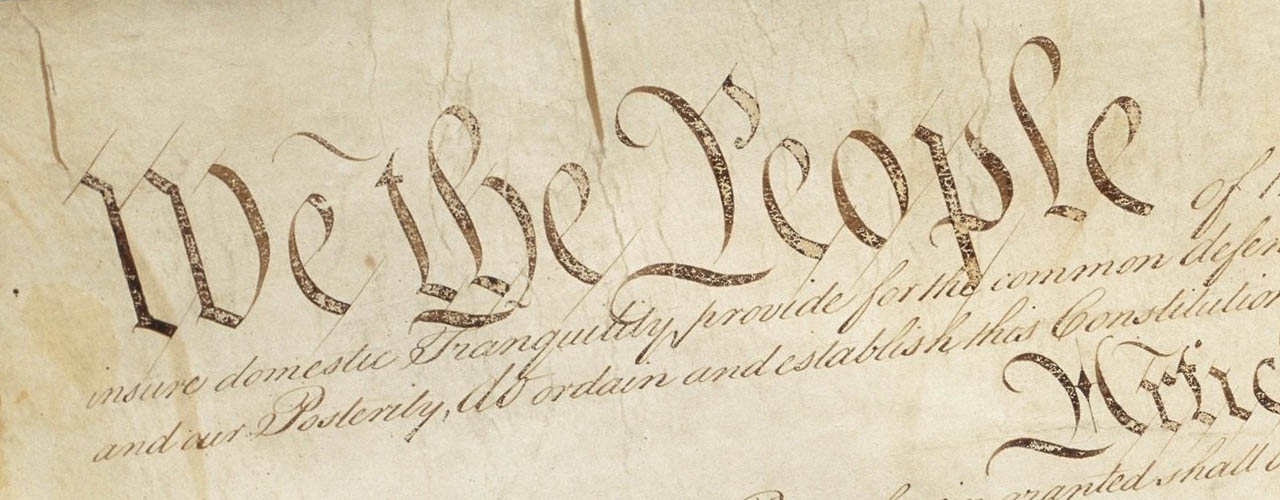 We the People of
insure domestic Tranquility, provide for the common defen
and our Posterity, do ordain and establish this Constitution
Artic
granted shall